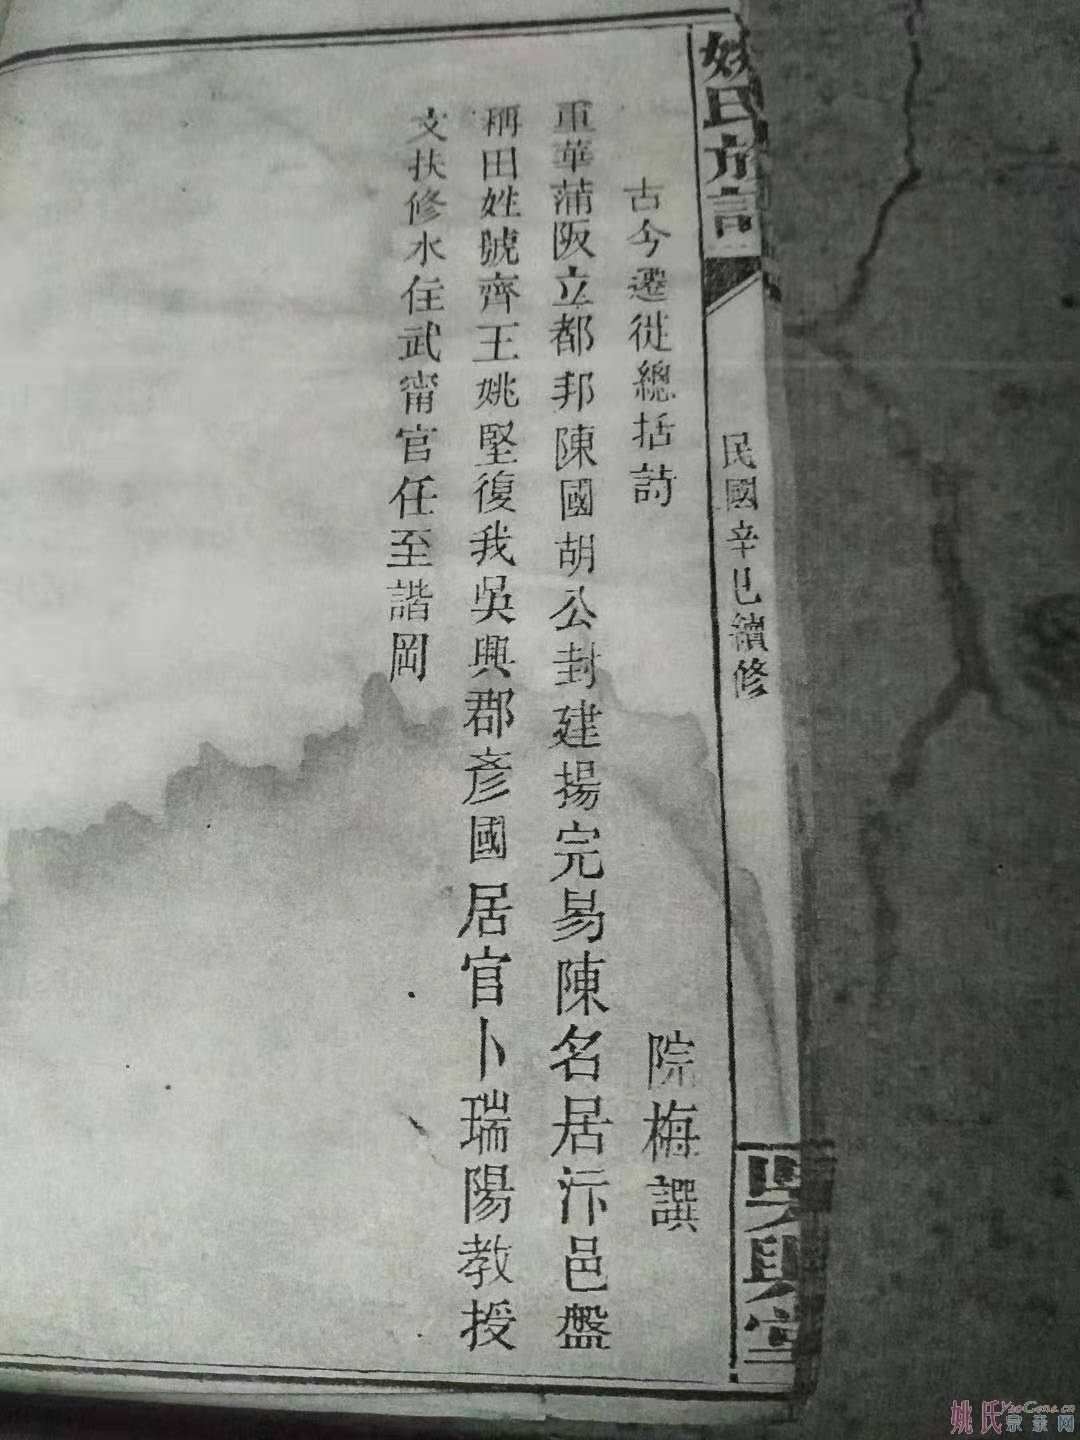 姚氏族譜
民國辛巳續修
吳興堂
古今遷徙總括詩
院梅譔
重華蒲阪立都邦陳國胡公封建揚完易陳名居汴邑盤
稱田姓號齊王姚堅復我吳興郡彥國居官卜瑞陽教授
文扶修水任武甯官任至諧岡
姚氏宗亲网
YaoGens.cn